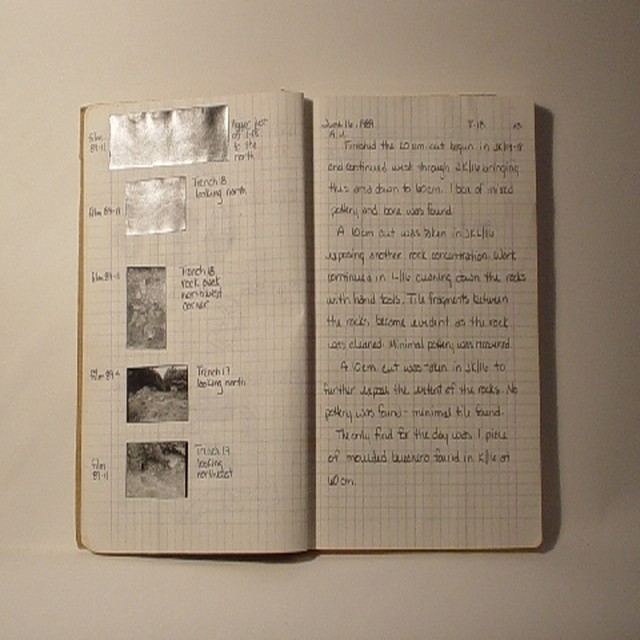 film
89-11
of T-18
to the
north
Trench 18
looking north
film 89-11
film 89-11
Trench 18
rock over
northwest
corner
film 89-11
Trench 17
looking north
film
89-11
Trench 17
looking
northwest
June 16, 1989 T-18
Finished the 60cm cut begun in
and continued west through JK/16 bringing
this area down to 60cm. 1 box of mixed
pottery and bone was found.
A 10cm cut was taken in JKL/16
exposing another rock concentration. Work
continued in L/16 cleaning down the rocks
with hand tools. Tile fragments between
the rocks became evident as the rock
was cleaned. Minimal pottery was recovered.
A 10cm cut was taken in JK/16 to
further expose the extent of the rocks. No
pottery was found - minimal tile found.
The only find for the day was 1 piece
of moulded bucchero found in K/16 at
60cm.